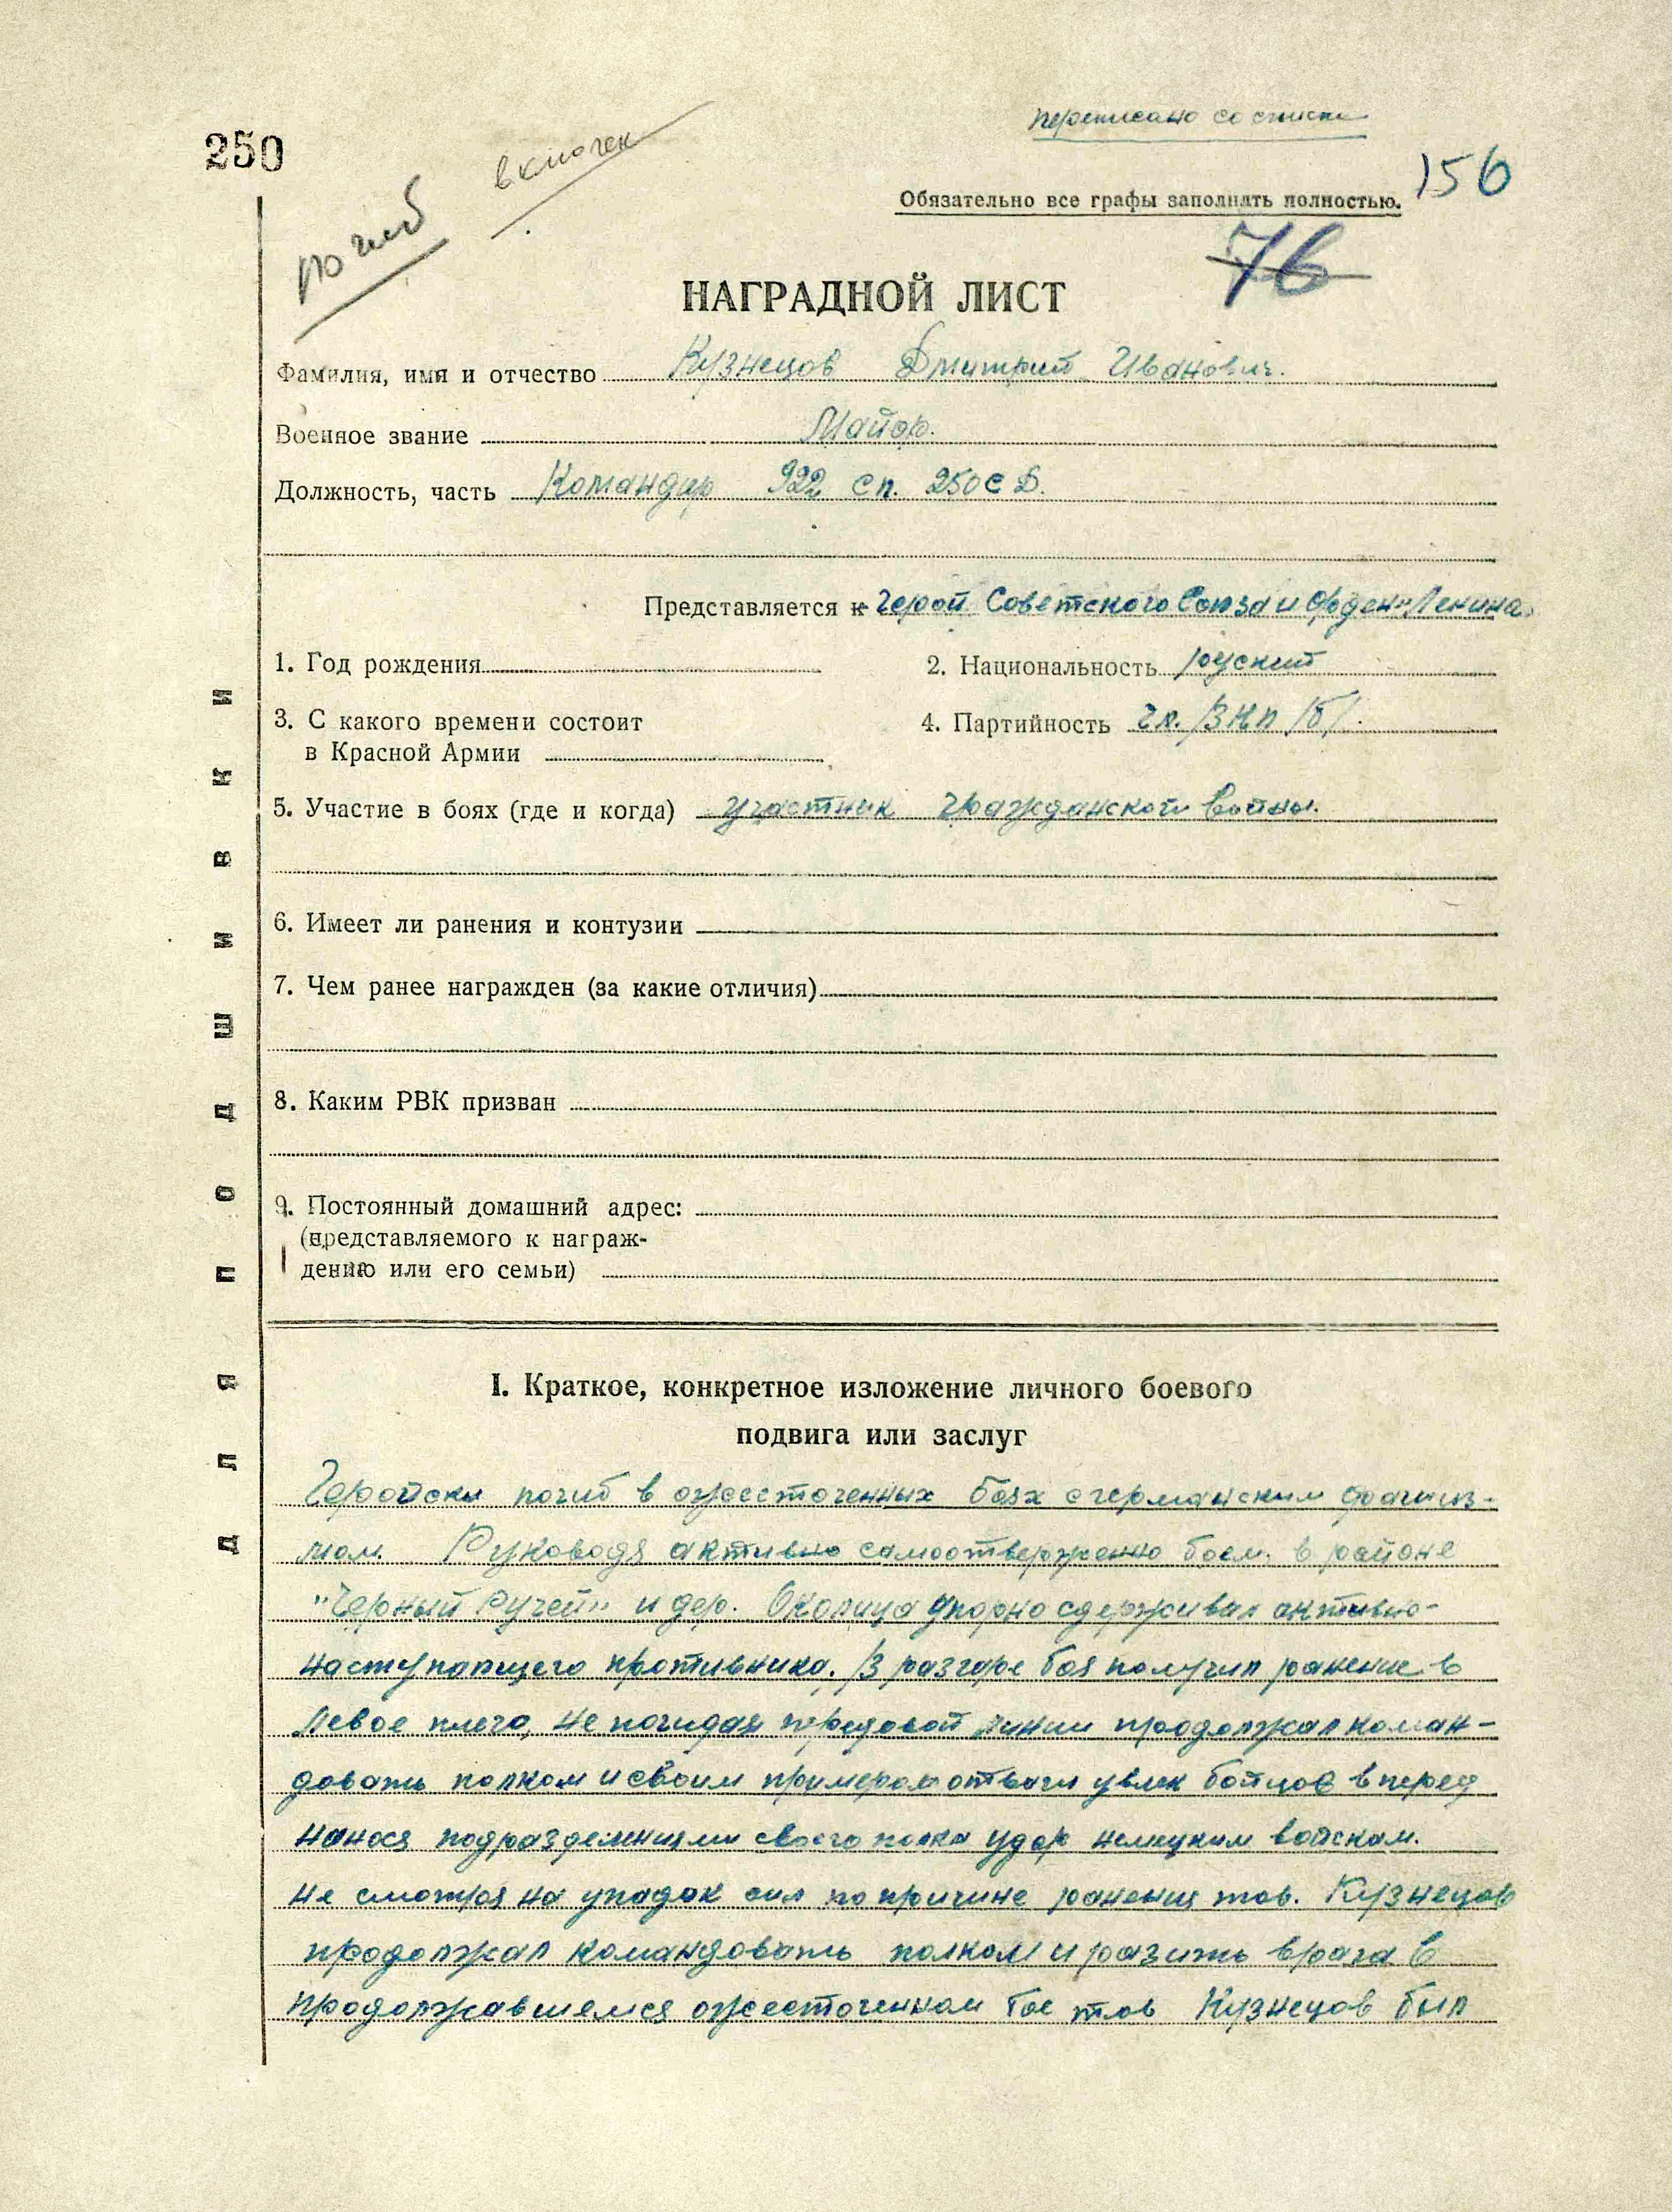 переписано со списка
250
включен
погиб
156
Обязательно все графы заполнять полностью.
76
НАГРАДНОЙ ЛИСТ
Фамилия, имя и отчество Кузнецов Дмитрий Иванович.
Военное звание Майор.
Должность, часть Командир 922 сп. 250 СД.
Представляется к Герой Советского Союза и Орден "Ленина"
1. Год рождения
2. Национальность руский
3. С какого времени состоит
в Красной Армии
4. Партийность чл. ВКП /б/.
5. Участие в боях (где и когда) участник Гражданской войны.
6. Имеет ли ранения и контузии
7. Чем ранее награжден (за какие отличия)
8. Каким РВК призван
9. Постоянный домашний адрес:
(представляемого к награж-
дению или его семьи)
ДЛЯ ПОДШИВКИ
I. Краткое, конкретное изложение личного боевого
подвига или заслуг
Геройски погиб в ожесточенных боях с германским фашиз-
мом. Руководя активно самоотверженно боем в районе
"Черный Ручей" и дер. Околица упорно сдерживал активно-
наступающего противника. В разгаре боя получил ранение в
левое плечо, не покидая передовой линии продолжал коман-
довать полком и своим примером отваги увлек бойцов вперед
нанося подразделениями своего полка удар немецким войскам.
не смотря на упадок сил по причине ранения тов. Кузнецов
продолжал командовать полком и разить врага в
продолжавшемся ожесточенном бое тов Кузнецов был